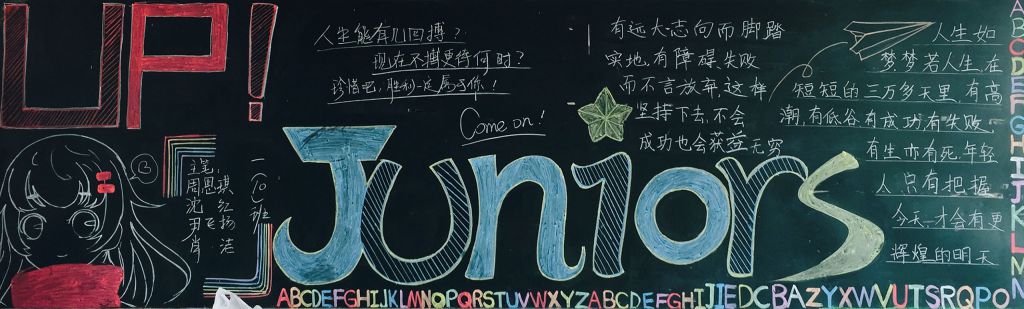 UP!
人生能有几回搏？
现在不搏更待何时？
珍惜吧，胜利一定属于你！
Come on!
有远大志向而脚踏
实地，有障碍失败
而不言放弃，这样
坚持下去，不会
成功也会获益无穷
人生如
梦，梦若人生，在
短短的三万多天里，有高
潮，有低谷，有成功，有失败，
有生亦有死，年轻
人只有把握
今天，才会有更
辉煌的明天
Juniors
一（10）班
主笔：
周恩琪
沈红扬
ABCDEFGHIJKLMNOPQRSTUVWXYZABCDEFGHIJIEDCBAZYXWVUTSRQPO
ABCDEFGHIJKLMN